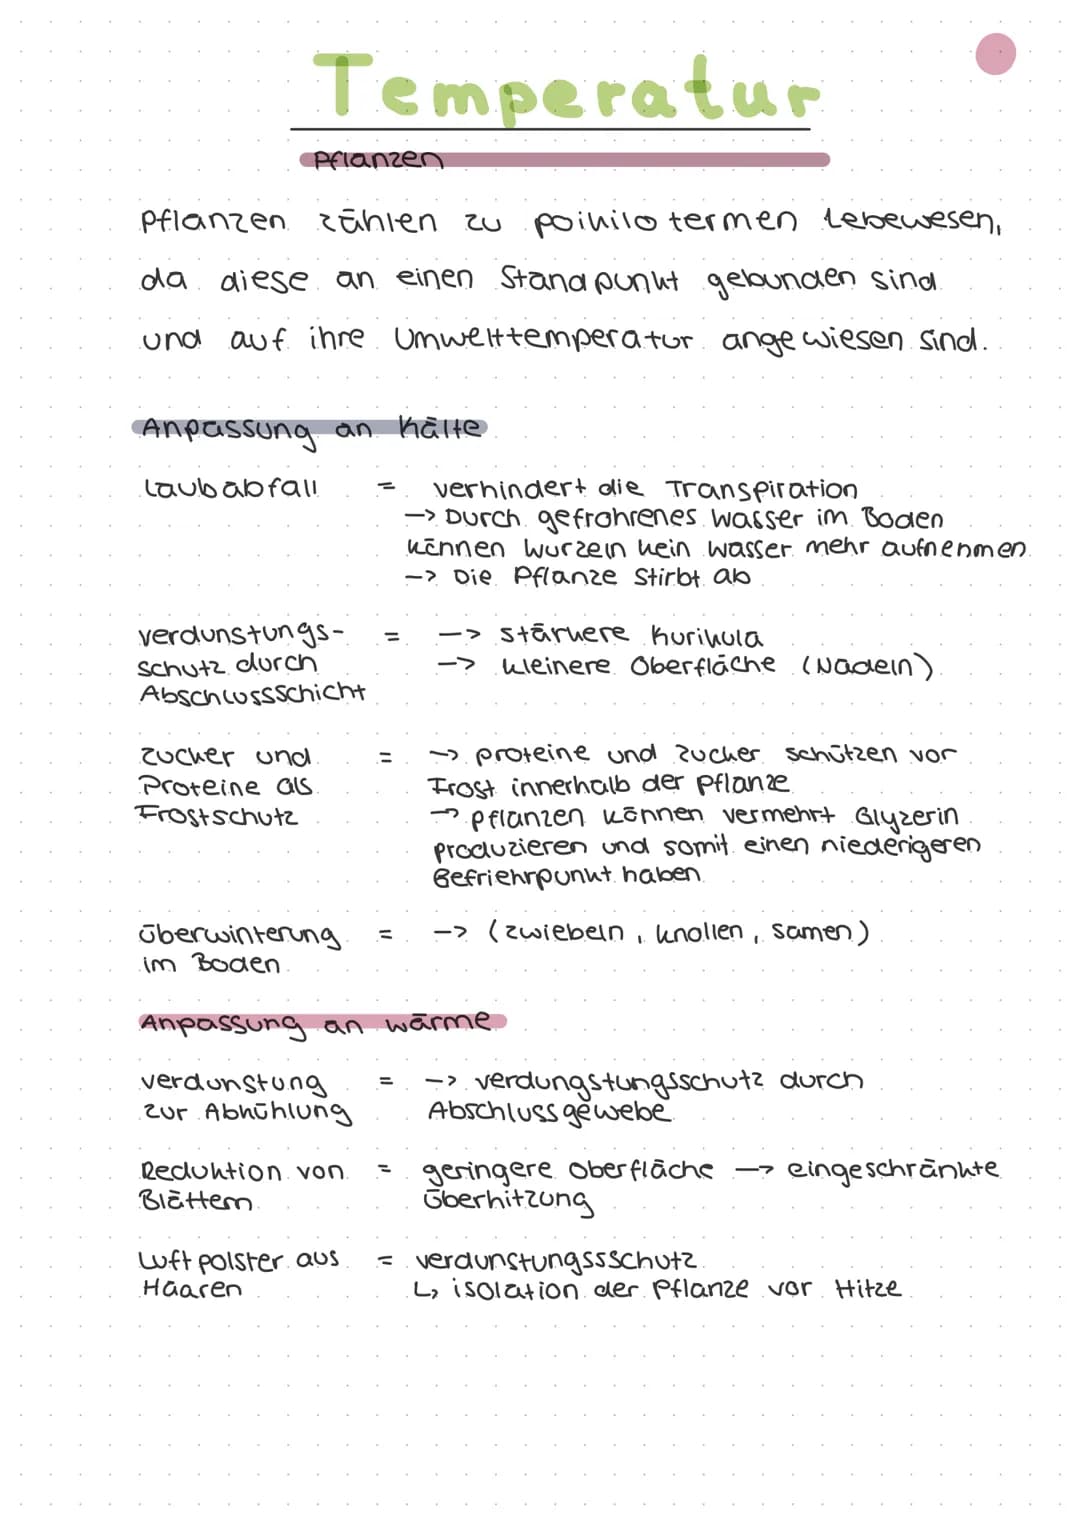 Temperatur
Pflanzen
Pflanzen zählen zu poikilotermen Lebewesen,
da diese an einen Standpunkt gebunden sind
und auf ihre Umwelttemperatur angewiesen sind.
Anpassung an Kälte
Laubabfall = verhindert die Transpiration
-> Durch gefrohrenes Wasser im Boden
können Wurzeln kein Wasser mehr aufnehmen
-> Die Pflanze stirbt ab
Verdunstungs- = -> stärkere Kurikula
schutz durch -> kleinere Oberfläche (Nadeln)
Abschlussschicht
Zucker und = -> proteine und Zucker schützen vor
Proteine als Frost innerhalb der Pflanze
Frostschutz -> Pflanzen können vermehrt Glyzerin
produzieren und somit einen niederigeren
Gefriehrpunkt haben
Überwinterung = -> (Zwiebeln, Knollen, Samen)
im Boden
Anpassung an Wärme
Verdunstung = -> Verdungstungsschutz durch
zur Abkühlung Abschlussgewebe
Reduktion von = geringere Oberfläche -> eingeschränkte
Blättern Überhitzung
Luftpolster aus = Verdunstungssschutz
Haaren ↳ isolation der Pflanze vor Hitze